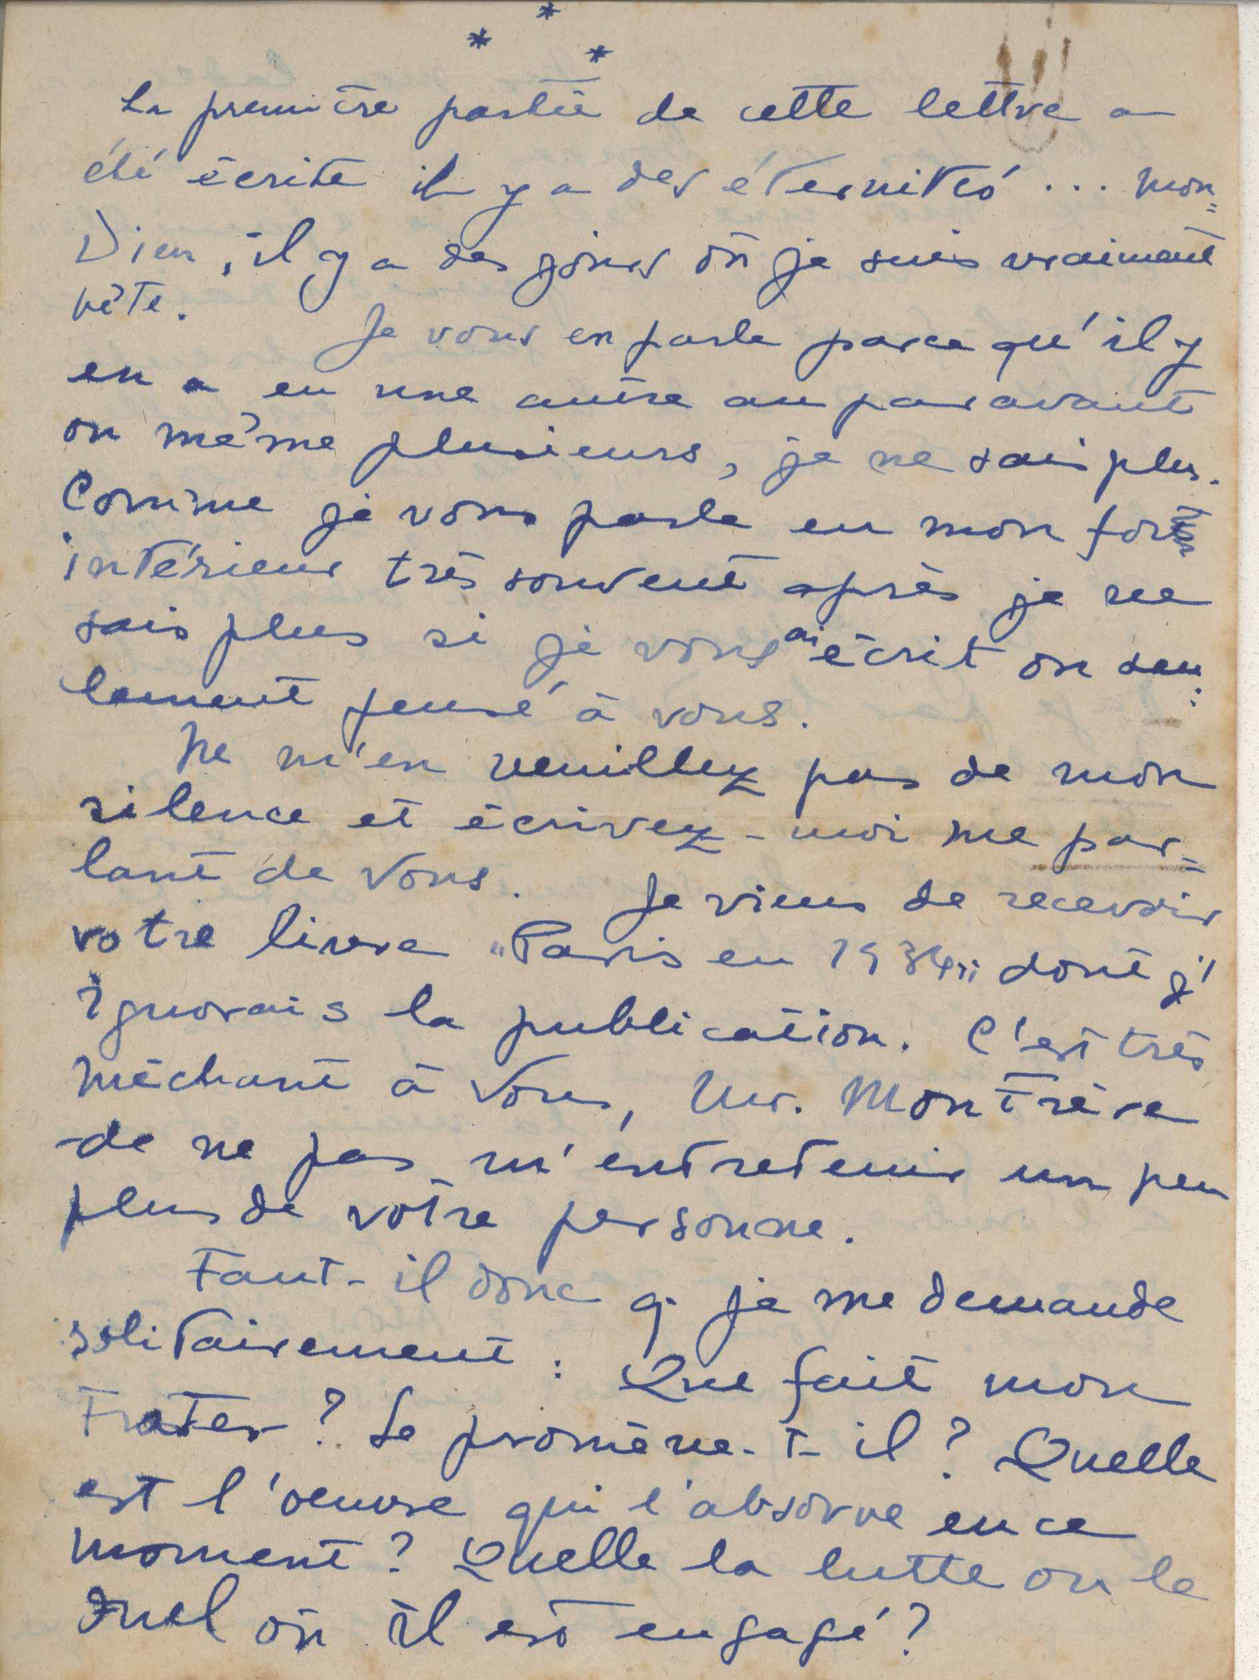 * * *
La première partie de cette lettre a
été écrite il y a des éternités ... Mon=
Dieu, il y a des jours où je suis vraiment
bête. Je vous en parle parce qu'il y
en a eu une autre auparavant
ou même plusieurs, je ne sais plus.
Comme je vous parle en mon fort
intérieur très souvent après je ne
sais plus si je vous ai écrit ou seu=
lement pensé à vous.
Ne m'en veuillez pas de mon
silence et écrivez-moi me par=
lant de Vous. Je viens de recevoir
votre livre "Paris en 1934" dont j'
ignorais la publication. C'est très
méchant à Vous, Mr. Montrève
de ne pas m'entretenir un peu
plus de votre personne.
Faut-il donc q. je me demande
solitairement : Que fait mon
Frater ? Se promène-t-il ? Quelle
est l'oeuvre qui l'absorbe en ce
moment ? Quelle la lutte ou le
duel où il est engagé ?